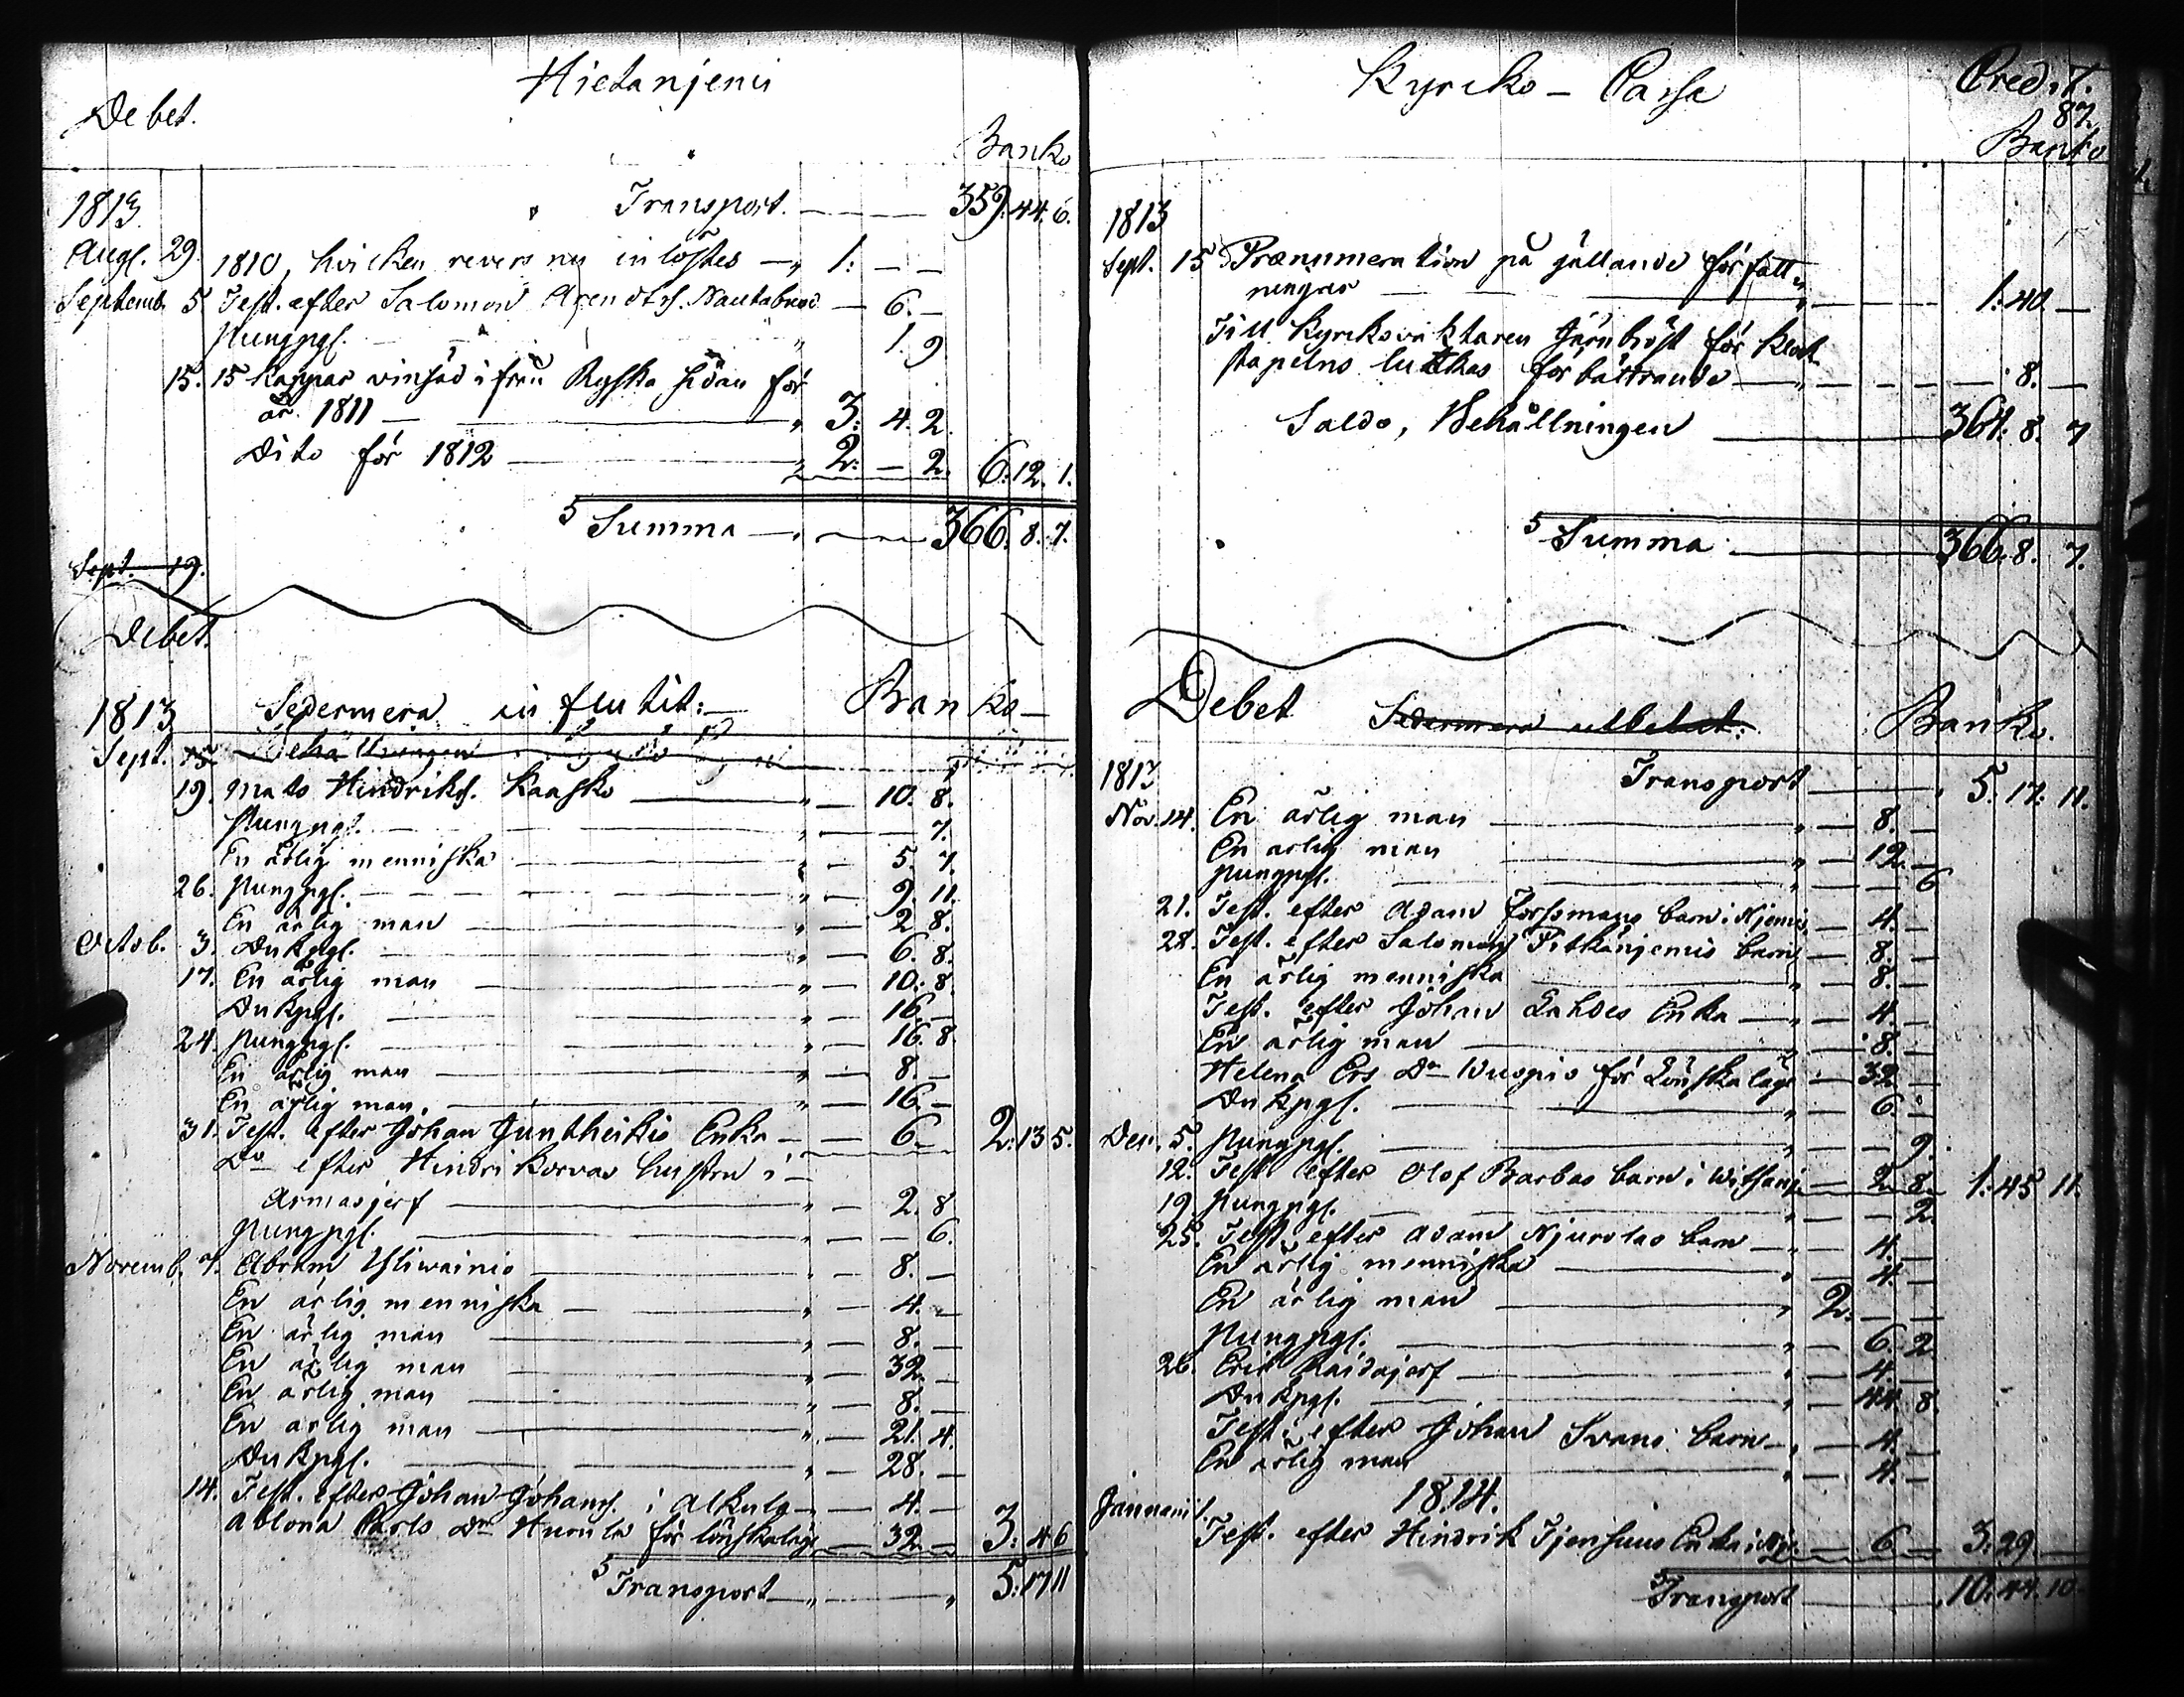 Hietanjemi
Debet.
Banko
1813.
Transport. — 359. 44. 6.
Augs. 29. 1810, hvilken revers nu inlöstes — 1: — —
Septemb. 5. Test. efter Salomon Arendtss. — 6. —
Pungpgs. 1. 9
15. 15 Kappar vinsäd ifrån Ryska sidan för
år 1811 — 3: 4. 2.
Dito för 1812 — 2: — 2. 6. 12. 1.
Summa — 366. 8. 7.
Sept. 19.
Debet.
1813 Sedermera influtit: — Banko —
Sept. 15 Behållningen
19. Mats Hindrikss. Kaasko — 10. 8.
Pungpgs. — 7.
En ärlig menniska — 5. 7.
26. Pungpgs. — 9. 11.
En ärlig man — 2. 8.
Octob. 3. Dukpgs. — 6. 8.
17. En ärlig man — 10. 8.
Dukpgs. — 16. —
24. Pungpgs. — 16. 8.
En ärlig man — 8. —
En ärlig man. — 16. —
31. Test. efter Johan Juntheikis Enka — 6. — 2: 13. 5.
Do efter Hindri Korvas hustru i
Armasjerf — 2. 8
Pungpgs. — 6.
Novemb. 7. Abram Yliwainio — 8. —
En ärlig menniska — 4. —
En ärlig man — 8. —
En ärlig man — 32. —
En ärlig man — 8. —
En ärlig man — 21. 4.
Dukpgs. — 28. —
14. Test. efter Johan Johanss. i Alkula — 4. —
Ablona Carls Dr. för löuskaläge — 32. — 3: 4. 6
Transport — 5: 17. 11
Kyrcko – Cassa
Credit.
87.
Banko
1813
Sept. 15 Prænumeration på gällande författ-
ningar — 1: 40. —
Till Kyrckovaktaren Järnhöst för klock
stapelns luckas förbättrande — 8. —
Saldo, Behållningen — 361: 8. 7
Summa — 366. 8. 7.
Debet Sedermera utbetalt: Banko.
1813 Transport — 5. 17. 11.
Nov. 14. En ärlig man — 8. —
En ärlig man — 12. —
Pungpgs. — 6
21. Test. efter Adam Forssmans barn i Njemis — 4. —
28. Test. efter Salomon Pitkänjemis barn — 8. —
En ärlig menniska — 8. —
Test. efter Johan Lahdes Enka — 4. —
En ärlig man — 8. —
Helena Ers Dr Wuopio för Löuskaläge — 32 —
Dukpgs. — 6. —
Dec. 5. Pungpgs. — 9.
12. Test. efter Olof Barbas barn i — 2. 8. 1: 45. 11.
19. Pungpgs. — 2.
25. Test. efter Adam Njurolas barn — 4. —
En ärlig menniska — 4. —
En ärlig man — 2: — —
Pungpgs. — 6. 2.
26. Eric Raidajerf — 4. —
Dukpgs. — 44. 8.
Test. efter Johan Svans barn — 4. —
En ärlig man — 4. —
1814.
Januarii 1.
Test. efter Hindrik Enka i — 6 — 3: 29. —
Transport — 10: 44. 10.